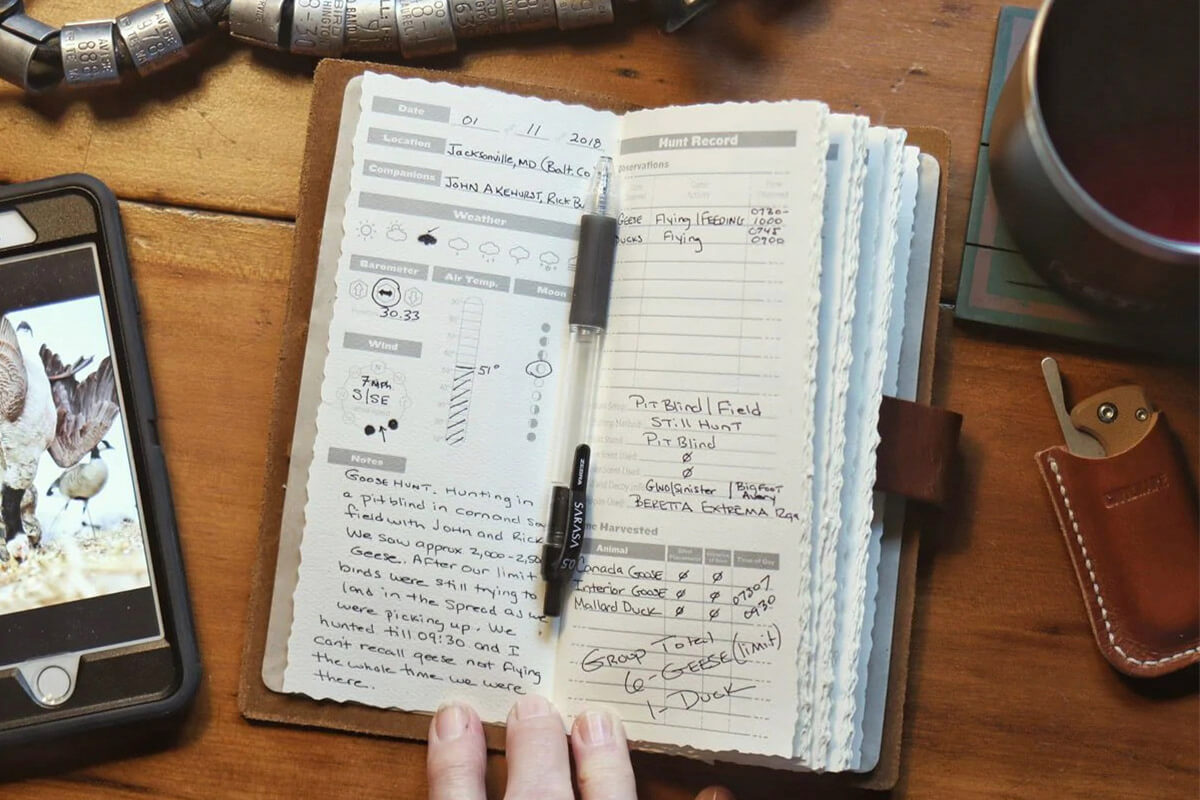 Date
01 / 11 / 2018
Location
Jacksonville, MD (Balt. Co
Companions
JOHN AKEHURST, Rick Bu
Weather
Barometer
Air Temp.
Moon
30.33
51°
Wind
7 MPH
S/SE
Notes
GOOSE HUNT. Hunting in
a pit blind in corn and
field with John and Rick
We saw approx 2,000-2,50
Geese. After our limit
birds were still trying to
land in the spread as we
were picking up. We
hunted till 09:30 and I
can't recall geese not flying
the whole time we were
there.
ZEBRA
SARASA
Hunt Record
bservations
GEESE Flying/FEEDING 0730-1000
DUCKS Flying 0745 0900
Pit Blind/Field
Still Hunt
Pit Blind
Ø
Ø
GWO/Sinister / BigFoot Avery
BERETTA EXTREMA
me Harvested
Animal Time of Day
Canada Goose Ø Ø
Interior Goose Ø Ø 0730/
Mallard Duck Ø Ø 0930
Group Total
6-GEESE (limit)
1-Duck